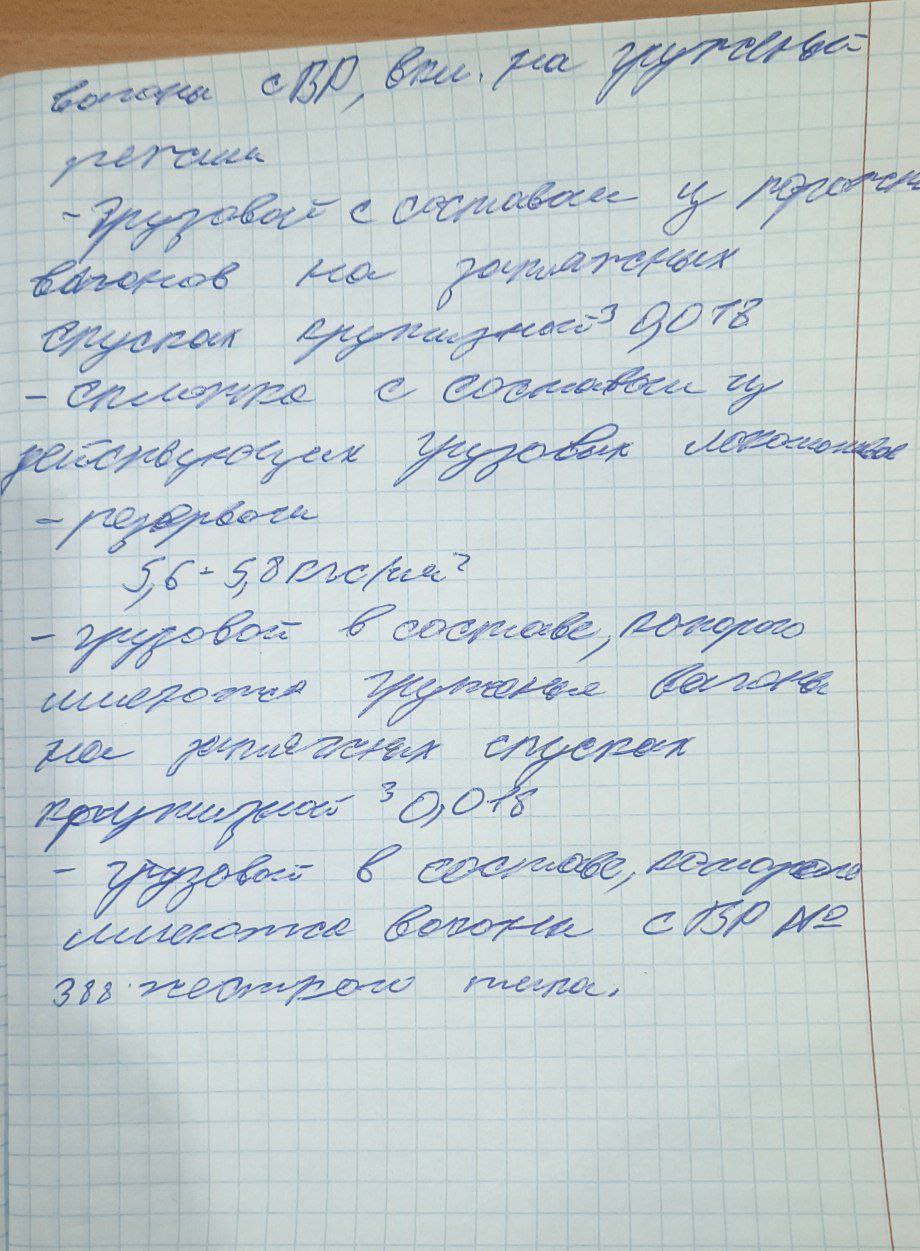 вагоны с ВР, вкл. на груженый
режим
- Грузовой с составом из порожн
вагонов на затяжных
спусках крутизной ³ 0,018
- сплотка с составом из
действующих грузовых локомотивов
- резервом
5,6 - 5,8 кгс/см²
- грузовой в составе, которого
имеются груженые вагоны
на затяжных спусках
крутизной ³ 0,018
- грузовой в составе, которого
имеются вагоны с ВР №
388 жесткого типа.